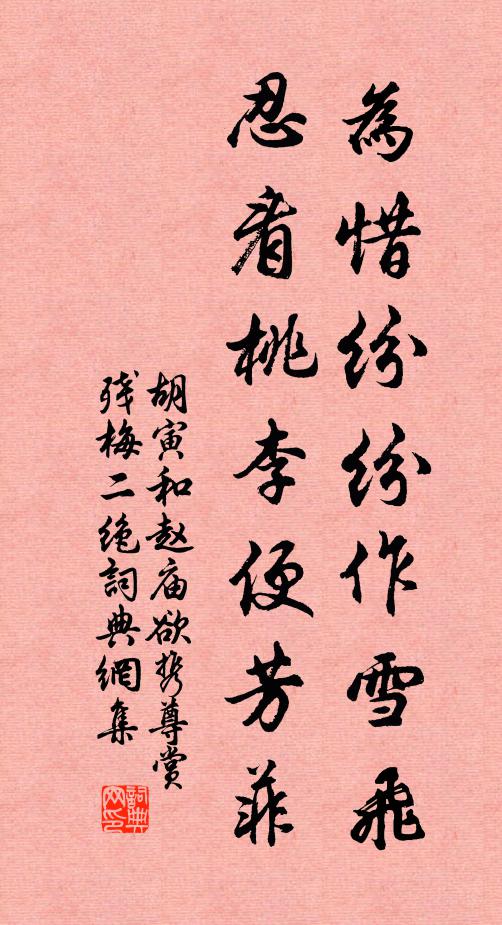 為惜纷纷作雪飛
忍看桃李便芳菲
胡寅和赵庙欲携尊赏
残梅二绝詞典網集
詞典
网印